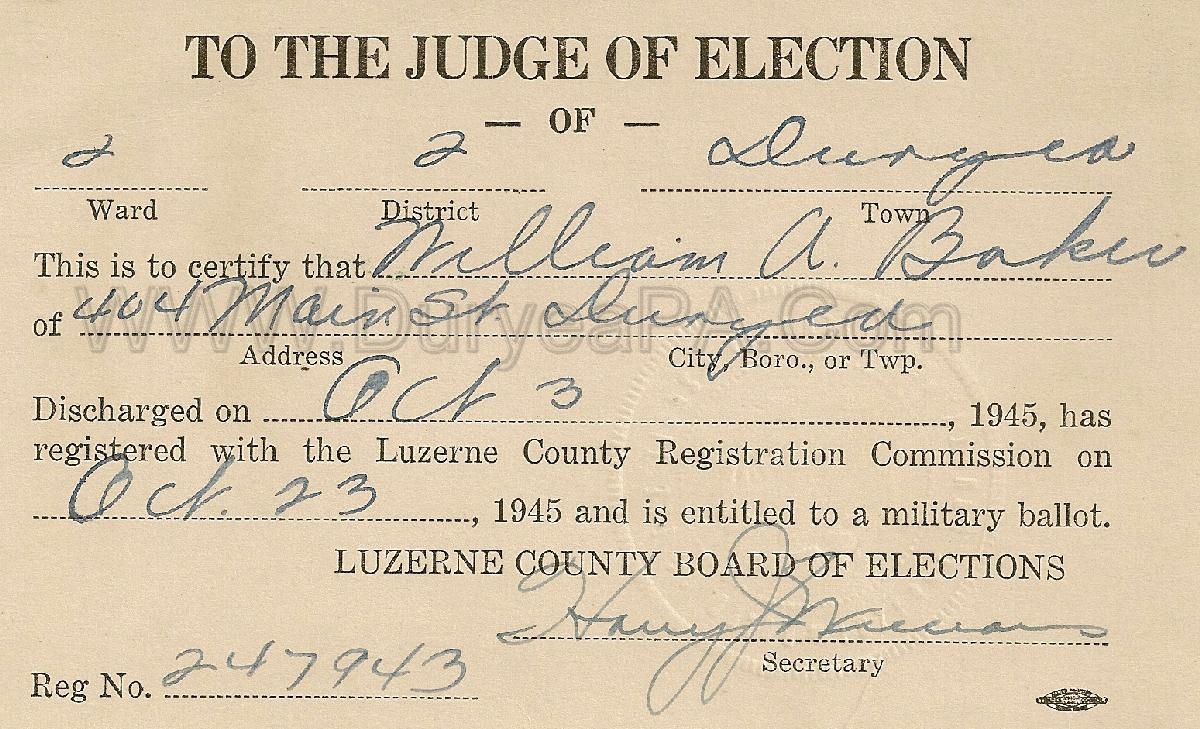 TO THE JUDGE OF ELECTION
— OF —
2 2 Duryea
Ward District Town
This is to certify that William A. Baker
of 404 Main St. Duryea
WWW.DuryeaPA.Com
Address City, Boro., or Twp.
Discharged on Oct 3, 1945, has
registered with the Luzerne County Registration Commission on
Oct. 23, 1945 and is entitled to a military ballot.
LUZERNE COUNTY BOARD OF ELECTIONS
Harry J.
Secretary
Reg No. 247943